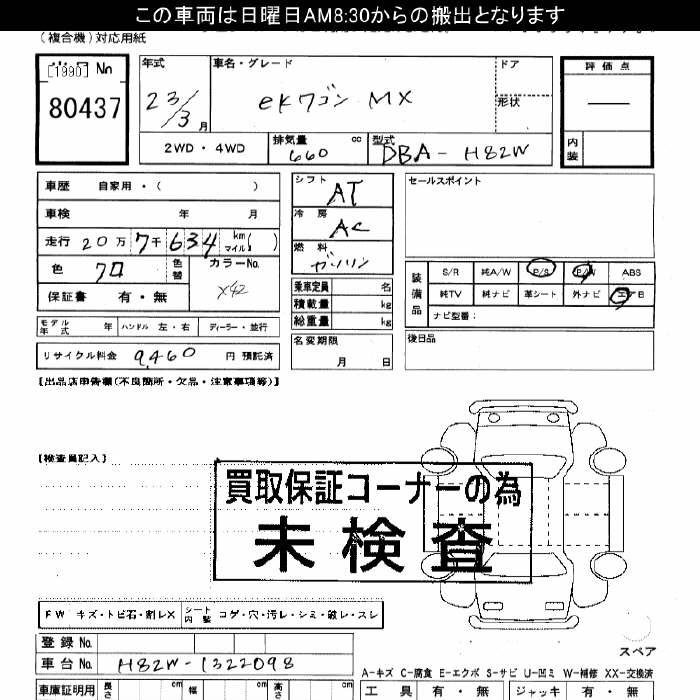 この車両は日曜日AM8:30からの搬出となります
(複合機)対応用紙
[1990] No
80437
年式
23/3月
車名・グレード
eKワゴン MX
ドア
形状
評価点
内装
2WD・4WD
排気量 cc
660
型式
DBA-H82W
車歴 自家用・( )
車検 年 月
走行 20万 7千 634 km マイル( )
色 クロ
色替
カラーNo.
X42
保証書 有・無
モデル年式 年 ハンドル 左・右 ディーラー・並行
リサイクル料金 9,460 円 預託済
シフト
AT
冷房
AC
燃料
ガソリン
乗車定員 名
積載量 kg
総重量 kg
名変期限
月 日
セールスポイント
装備品
S/R 純A/W P/S P/W ABS
純TV 純ナビ 革シート 外ナビ エアB
ナビ型番:
後日品
【出品店申告欄(不良箇所・欠品・注意事項等)】
【検査員記入】
買取保証コーナーの為
未検査
FW キズ・トビ石・割レX
シート内装 コゲ・穴・汚レ・シミ・破レ・スレ
登録No.
車台No. H82W-1322098
車庫証明用 長さ cm 幅 cm 高さ cm
スペア
A-キズ C-腐食 E-エクボ S-サビ U-凹ミ W-補修 XX-交換済
工具 有・無 ジャッキ 有・無